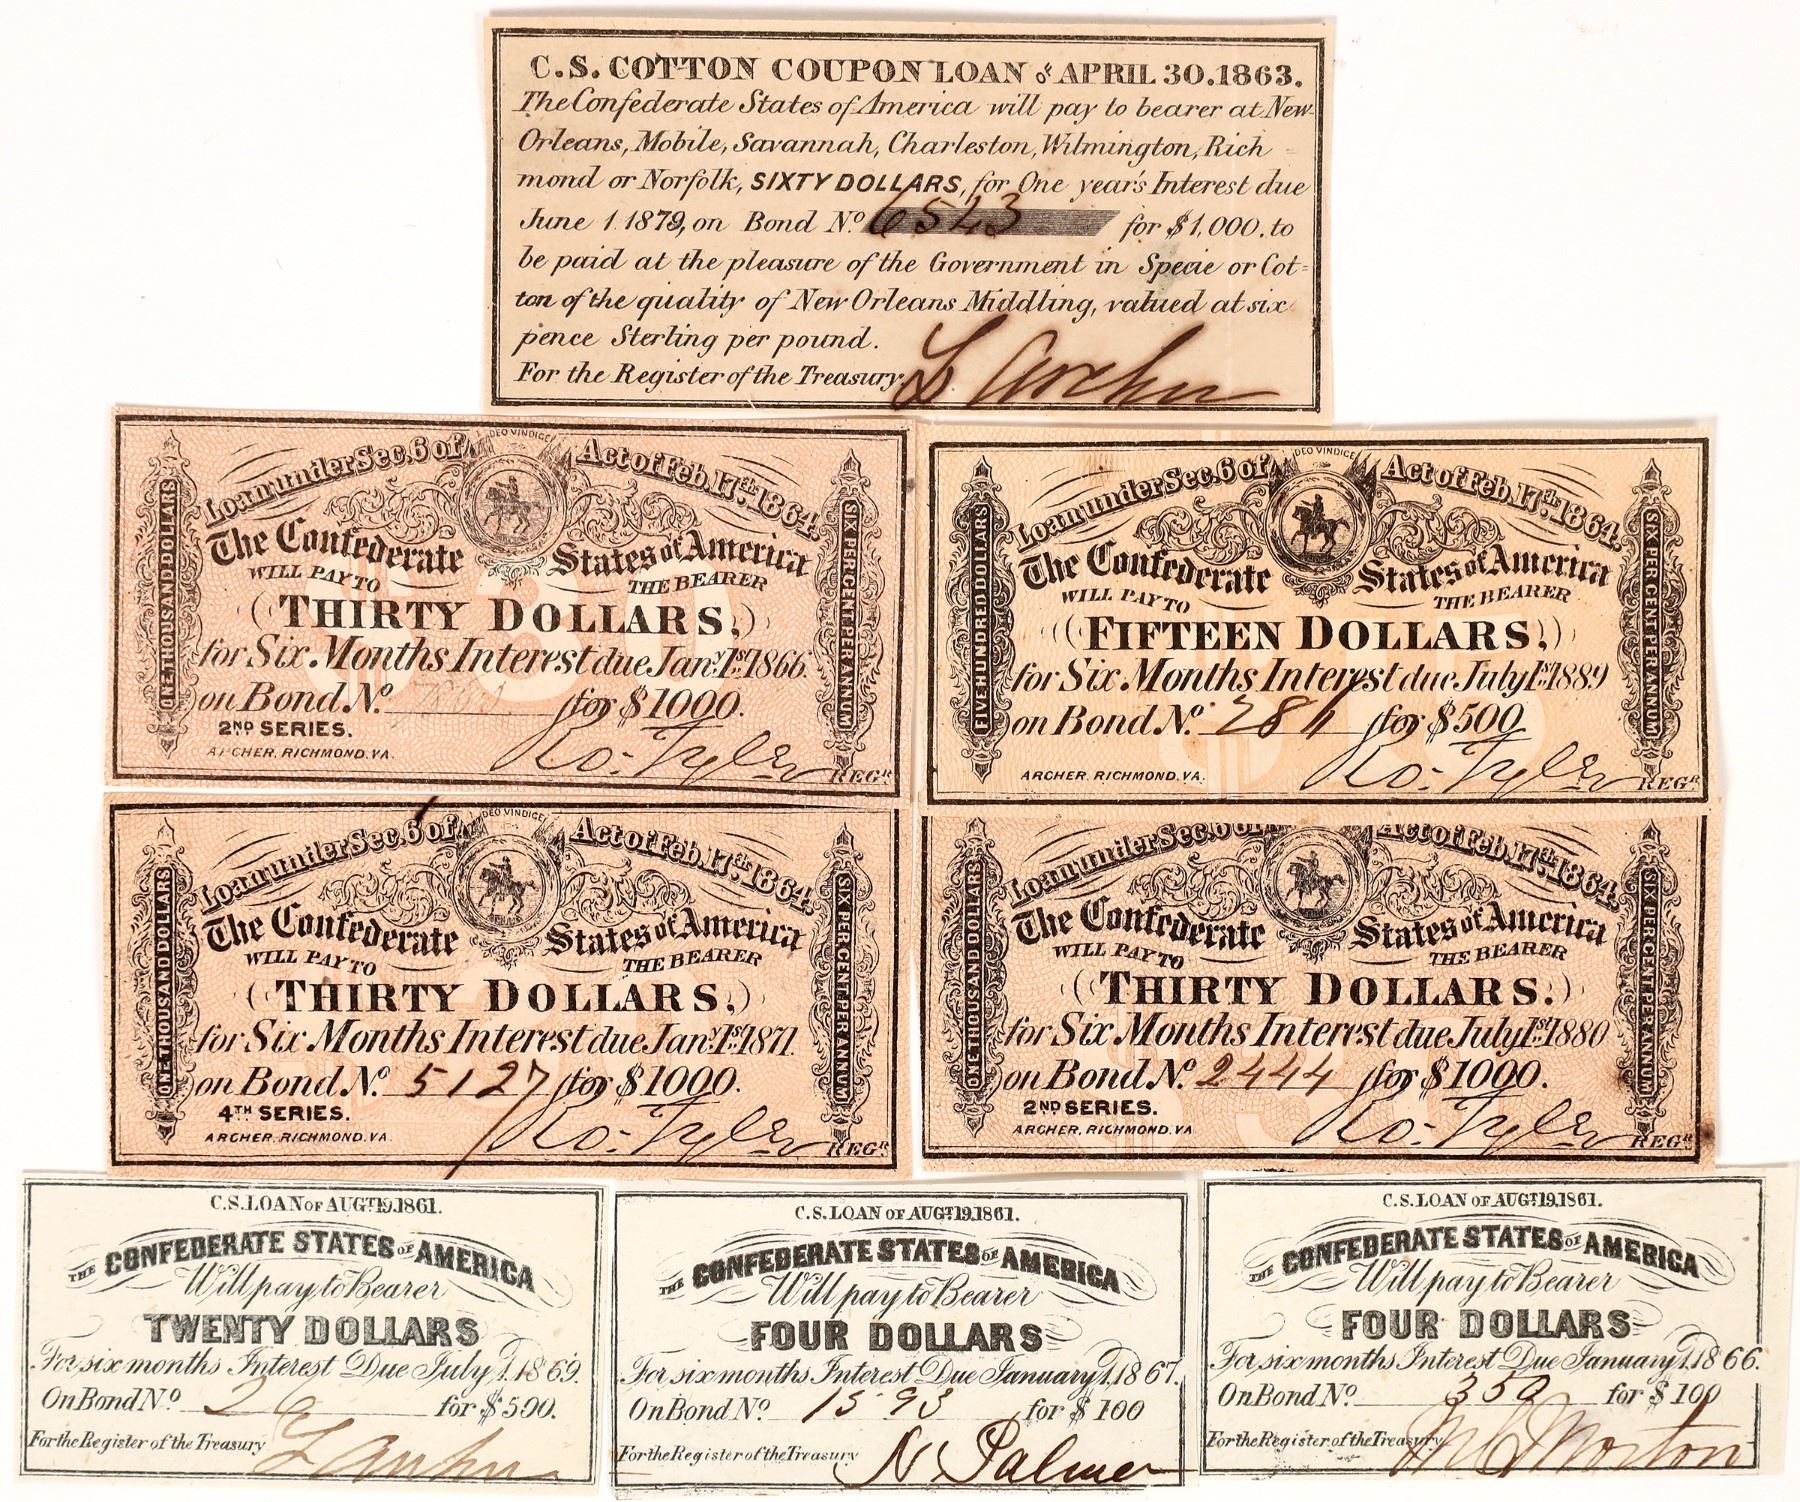 C.S. COTTON COUPON LOAN OF APRIL 30.1863.
The Confederate States of America will pay to bearer at New
Orleans, Mobile, Savannah, Charleston, Wilmington, Rich=
mond or Norfolk, SIXTY DOLLARS, for One year's Interest due
June 1 1879, on Bond No. 6543 for $1,000. to
be paid at the pleasure of the Government in Specie or Cot=
ton of the quality of New Orleans Middling, valued at six
pence Sterling per pound.
For the Register of the Treasury.
DEO VINDICE
Loan under Sec. 6 of Act of Feb. 17th 1864.
ONE THOUSAND DOLLARS
SIX PER CENT PER ANNUM
The Confederate States of America
WILL PAY TO THE BEARER
THIRTY DOLLARS,
for Six Months Interest due Jany. 1st 1866.
on Bond No. for $1000.
2ND SERIES.
ARCHER, RICHMOND, VA.
Ro. Tyler REGR
DEO VINDICE
Loan under Sec. 6 of Act of Feb. 17th 1864.
FIVE HUNDRED DOLLARS
SIX PER CENT PER ANNUM
The Confederate States of America
WILL PAY TO THE BEARER
FIFTEEN DOLLARS,
for Six Months Interest due July 1st 1889
on Bond No. for $500
ARCHER, RICHMOND, VA.
Ro. Tyler REGR
DEO VINDICE
Loan under Sec. 6 of Act of Feb. 17th 1864.
ONE THOUSAND DOLLARS
SIX PER CENT PER ANNUM
The Confederate States of America
WILL PAY TO THE BEARER
THIRTY DOLLARS,
for Six Months Interest due Jany. 1st 1871.
on Bond No. 5127 for $1000.
4TH SERIES.
ARCHER, RICHMOND, VA.
Ro. Tyler REGR
Loan under Sec. 6 of Act of Feb. 17th 1864.
ONE THOUSAND DOLLARS
SIX PER CENT PER ANNUM
The Confederate States of America
WILL PAY TO THE BEARER
THIRTY DOLLARS.
for Six Months Interest due July 1st 1880
on Bond No. 2444 for $1000.
2ND SERIES.
ARCHER, RICHMOND, VA
Ro. Tyler REGR
C.S. LOAN OF AUGT. 19, 1861.
THE CONFEDERATE STATES OF AMERICA
Will pay to Bearer
TWENTY DOLLARS
For six months Interest Due July 1, 1869.
On Bond No. for $500.
For the Register of the Treasury
C.S. LOAN OF AUGT. 19, 1861.
THE CONFEDERATE STATES OF AMERICA
Will pay to Bearer
FOUR DOLLARS
For six months Interest Due January 1, 1867.
On Bond No. 1593 for $100
For the Register of the Treasury
N. Palmer
C.S. LOAN OF AUGT. 19, 1861.
THE CONFEDERATE STATES OF AMERICA
Will pay to Bearer
FOUR DOLLARS
For six months Interest Due January 1, 1866.
On Bond No. for $100
For the Register of the Treasury
Morton